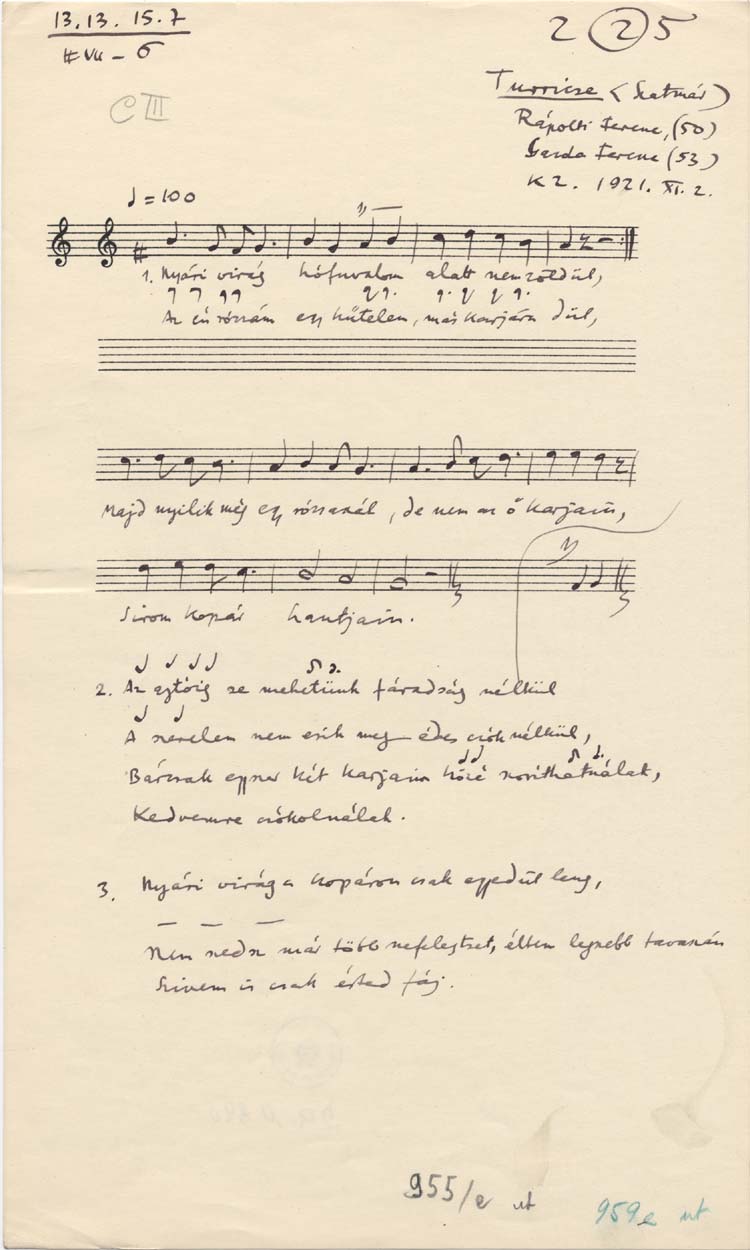 13. 13. 15. 7
VII – 6
2 2 5
C III
Turricse (Szatmár)
Rápolti Ferenc, (50)
Ferenc (53)
K Z. 1921. XI. 2.
♩ = 100
1. Nyári virág hófuvalom alatt nem zöldül,
Az én rózsám egy hűtelen, más karjára dül,
Majd nyilik még egy rózsaszál, de nem az ő karjain,
Sirom kopár hantjain.
2. Az ajtóig se mehetünk fáradság nélkül
A szerelem nem esik meg édes csók nélkül,
Bárcsak egyszer két karjaim közé szorithatnálak,
Kedvemre csókolnálak.
3. Nyári virág a kopáron csak egyedül leng,
— — —
Nem szedsz már több nefelejtset, éltem legszebb tavaszán
Szivem is csak érted fáj.
955/e ut
959e ut